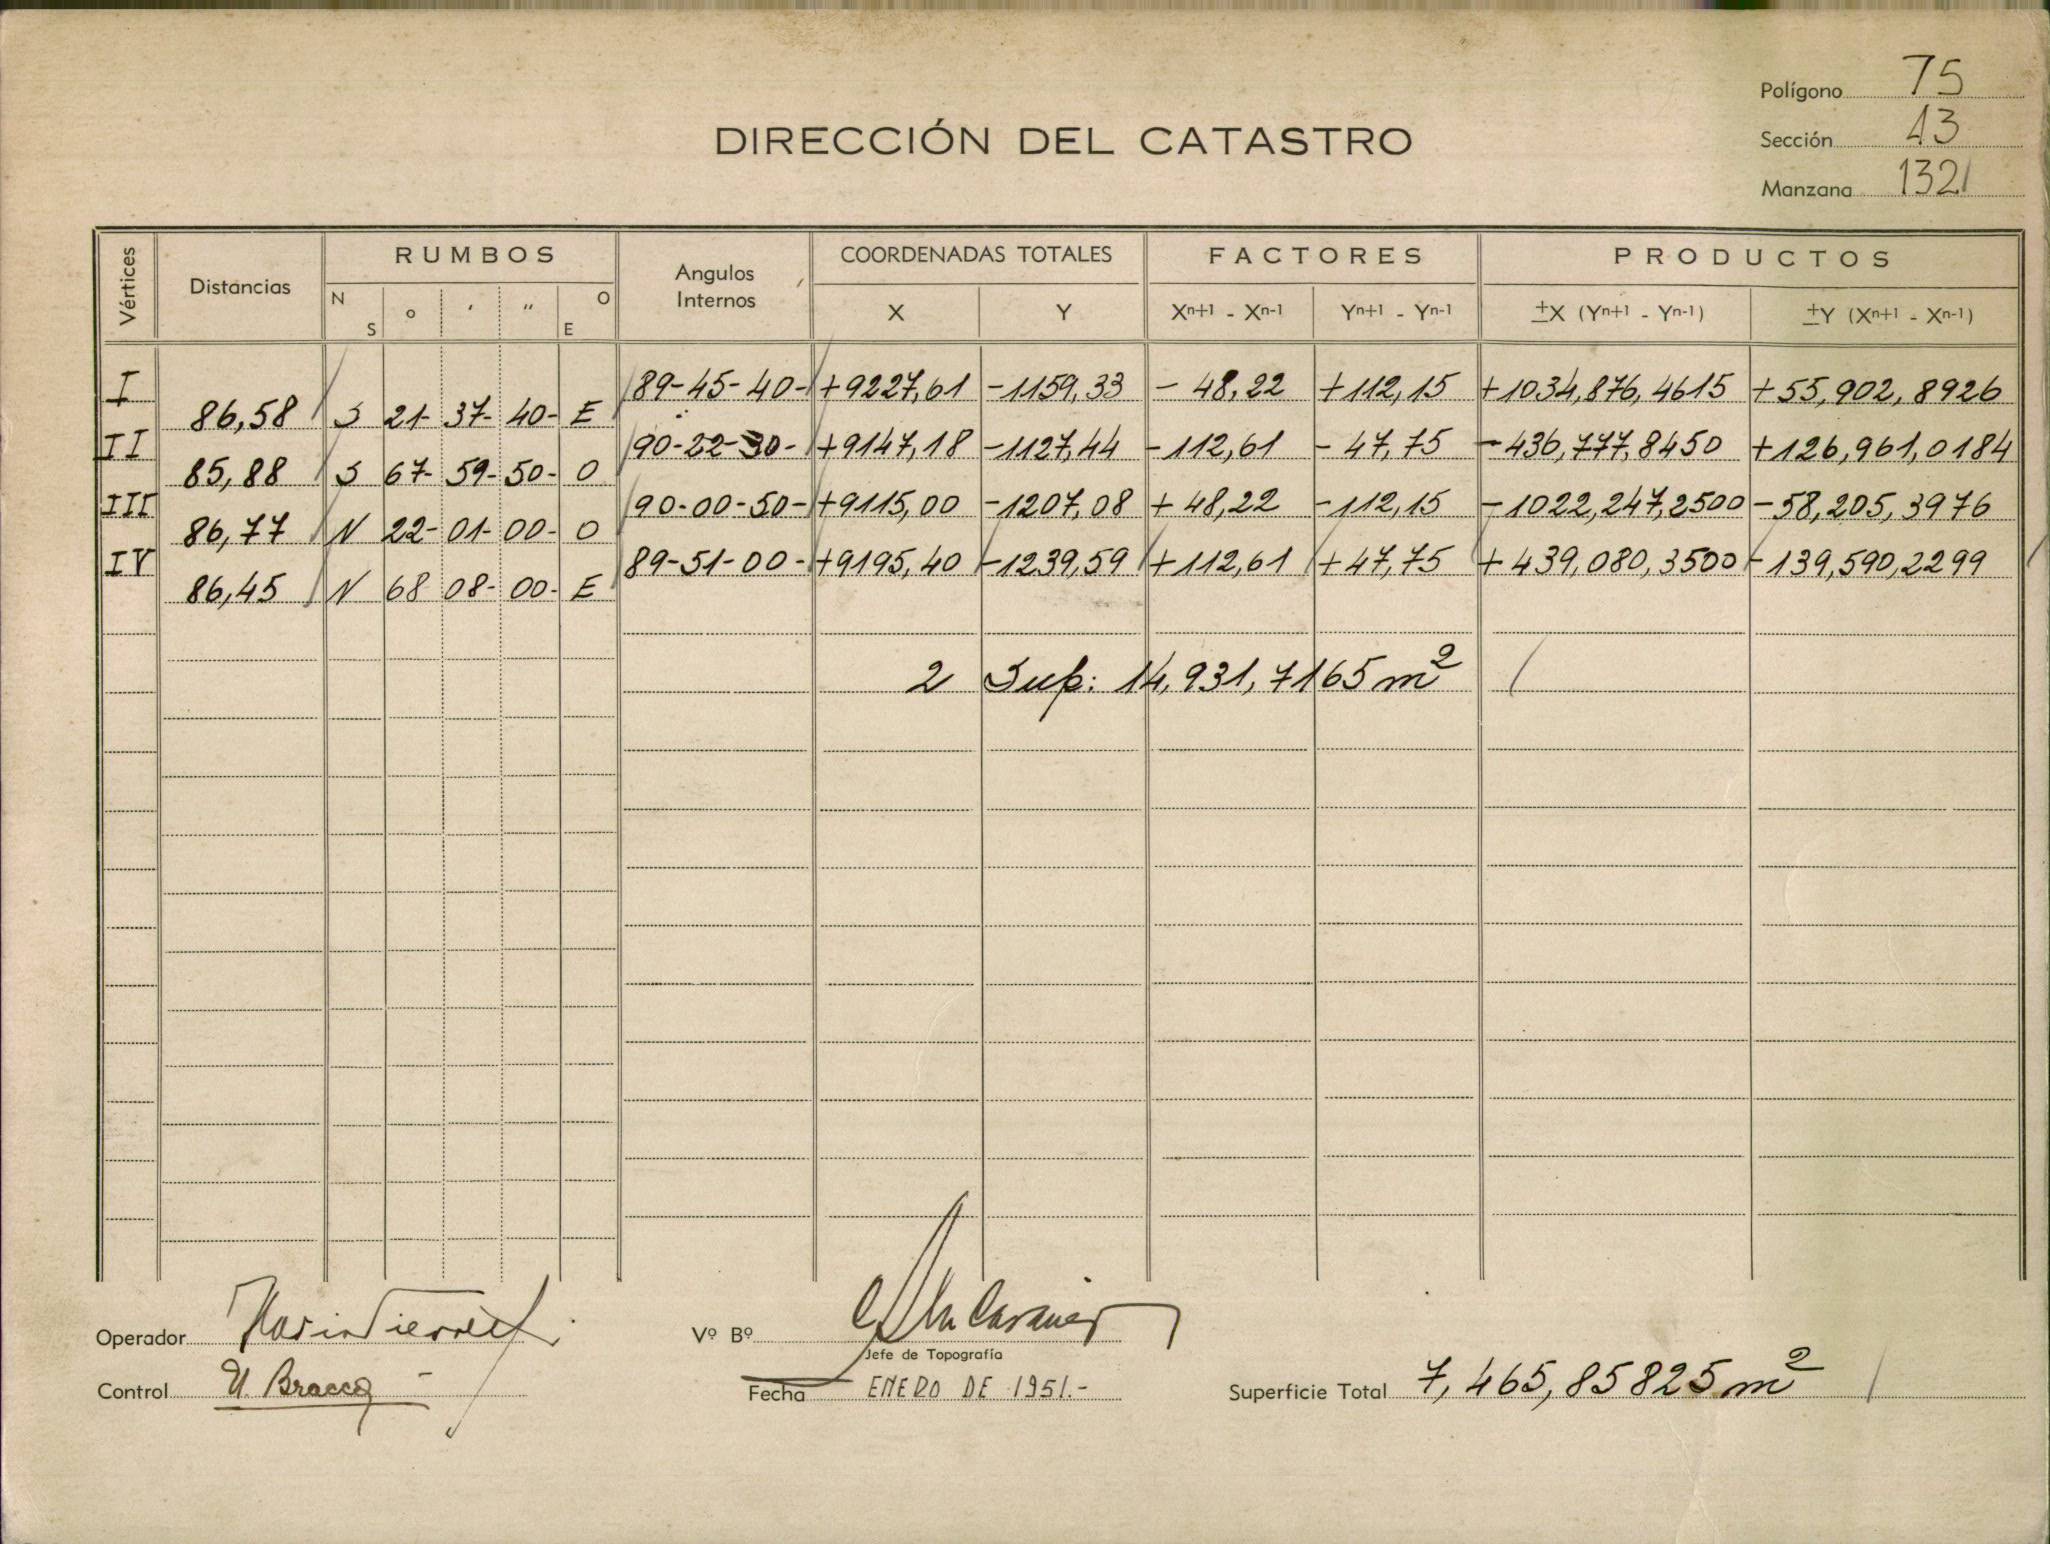 Polígono 75
DIRECCIÓN DEL CATASTRO
Sección 13
Manzana 132
Vértices Distancias RUMBOS Angulos Internos COORDENADAS TOTALES FACTORES PRODUCTOS
N S o ' " O E X Y Xn+1 - Xn-1 Yn+1 - Yn-1 ±X (Yn+1 - Yn-1) ±Y (Xn+1 - Xn-1)
I 89-45-40- +9227,61 -1159,33 - 48,22 +112,15 +1034,876,4615 +55,902,8926
86,58 S 21- 37- 40- E
II 90-22-30- +9147,18 -1127,44 -112,61 - 47,75 -436,777,8450 +126,961,0184
85,88 S 67- 59- 50- O
III 90-00-50- +9115,00 -1207,08 + 48,22 -112,15 -1022,247,2500 -58,205,3976
86,77 N 22- 01- 00- O
IV 89-51-00- +9195,40 -1239,59 +112,61 +47,75 +439,080,3500 -139,590,2299
86,45 N 68 08- 00- E
2 Sup: 14,931,7165 m2
Operador
Vº Bº
Jefe de Topografía
Control U Bracco
Fecha ENERO DE 1951.-
Superficie Total 7,465,85825 m2